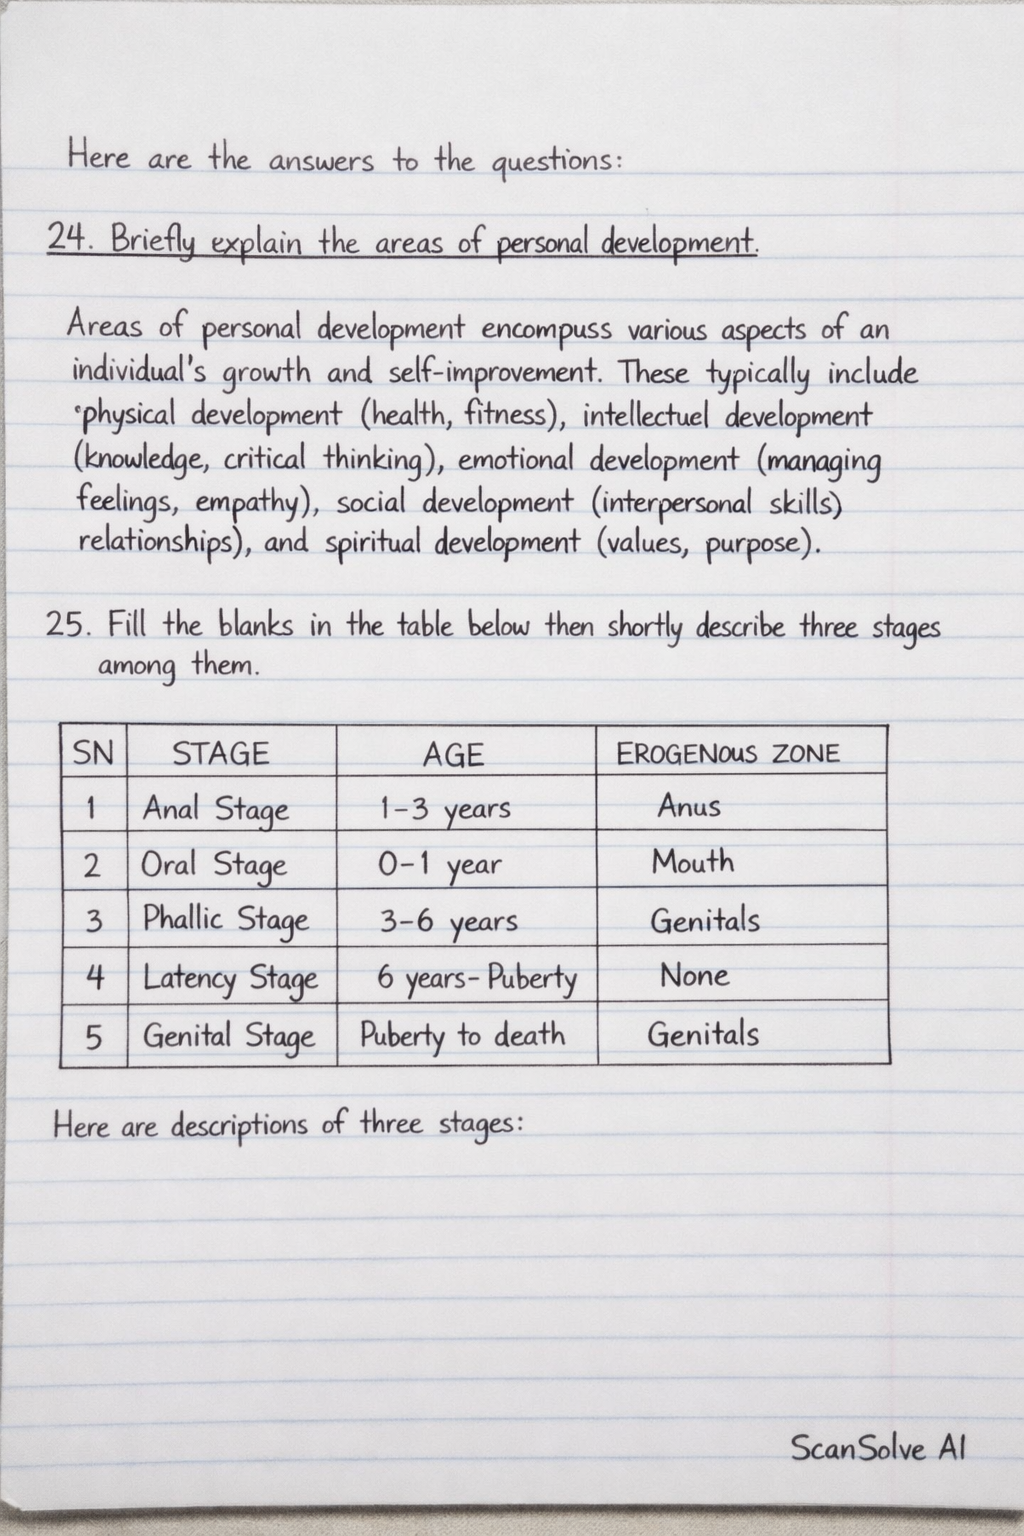 Here are the answers to the questions:
24. Briefly explain the areas of personal development.
Areas of personal development encompuss various aspects of an
individual's growth and self-improvement. These typically include
physical development (health, fitness), intellectuel development
(knowledge, critical thinking), emotional development (managing
feelings, empathy), social development (interpersonal skills)
relationships), and spiritual development (values, purpose).
25. Fill the blanks in the table below then shortly describe three stages
among them.
SN STAGE AGE EROGENOUS ZONE
1 Anal Stage 1-3 years Anus
2 Oral Stage 0-1 year Mouth
3 Phallic Stage 3-6 years Genitals
4 Latency Stage 6 years-Puberty None
5 Genital Stage Puberty to death Genitals
Here are descriptions of three stages:
ScanSolve AI